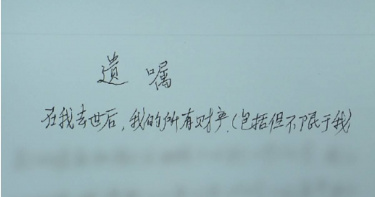 遗嘱
在我去世后，我的所有财产，(包括但不限于我)